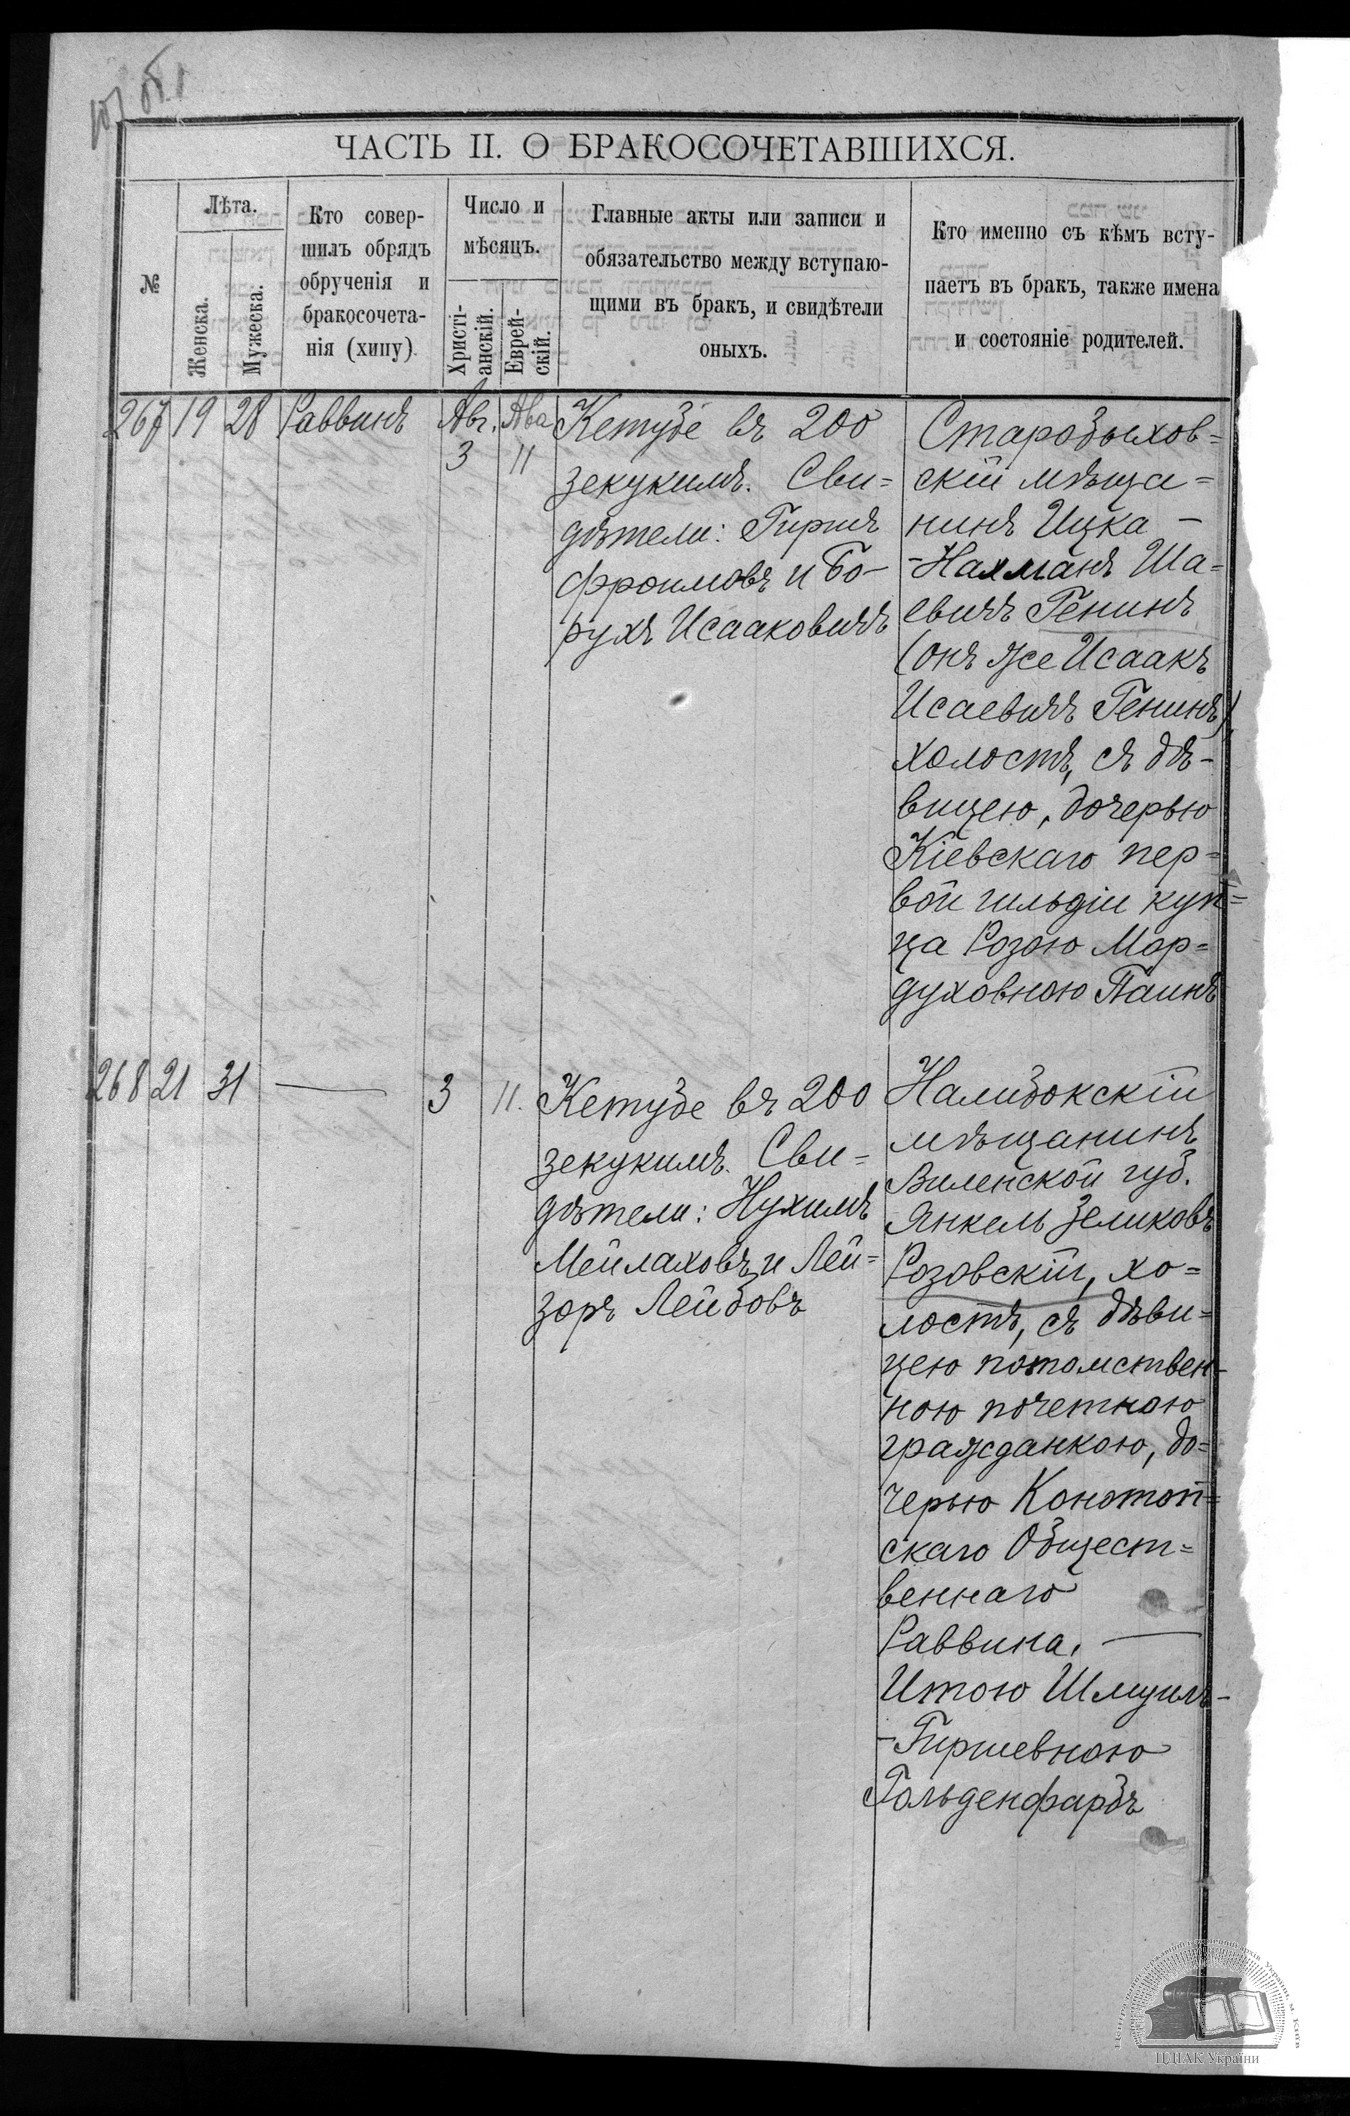 ЧАСТЬ II. О БРАКОСОЧЕТАВШИХСЯ.
№
Лѣта.
Женска.
Мужеска.
Кто совер-
шилъ обрядъ
обрученія и
бракосочета-
нія (хипу)
Число и
мѣсяцъ.
Христі-
анскій.
Еврей-
скій.
Главные акты или записи и
обязательство между вступаю-
щими въ бракъ, и свидѣтели
оныхъ.
Кто именно съ кѣмъ всту-
паетъ въ бракъ, также имена
и состояніе родителей.
267 19 28 Раввинъ Авг. Ава
3 11
Кетубе въ 200
зекукимъ. Сви=
дѣтели: Гиршъ
Фроимовъ и Бо-
рухъ Исааковичъ
Старобыхов=
скій мѣща=
нинъ Ицка -
-Нахманъ Ша=
евичъ Генинъ
(онъ же Исаакъ
Исаевичъ Генинъ),
холостъ, съ дѣ-
вицею, дочерью
Кіевскаго пер=
вой гильдіи куп=
ца Розою Мор=
духовною Паинъ
268 21 31 — 3 11.
Кетубе въ 200
зекукимъ. Сви=
дѣтели: Нухимъ
Мейлаховъ и Лей=
зоръ Лейбовъ
Налибокскій
мѣщанинъ
Виленской губ.
Янкель Зеликовъ
Розовскій, хо=
лостъ, съ дѣви=
цею потомствен-
ною почетною
гражданкою, до=
черью Конотоп=
скаго Общест=
веннаго
Раввина. —
Итою Шмуилъ-
-Гиршевною
Гольденфарбъ
ЦДІАК України